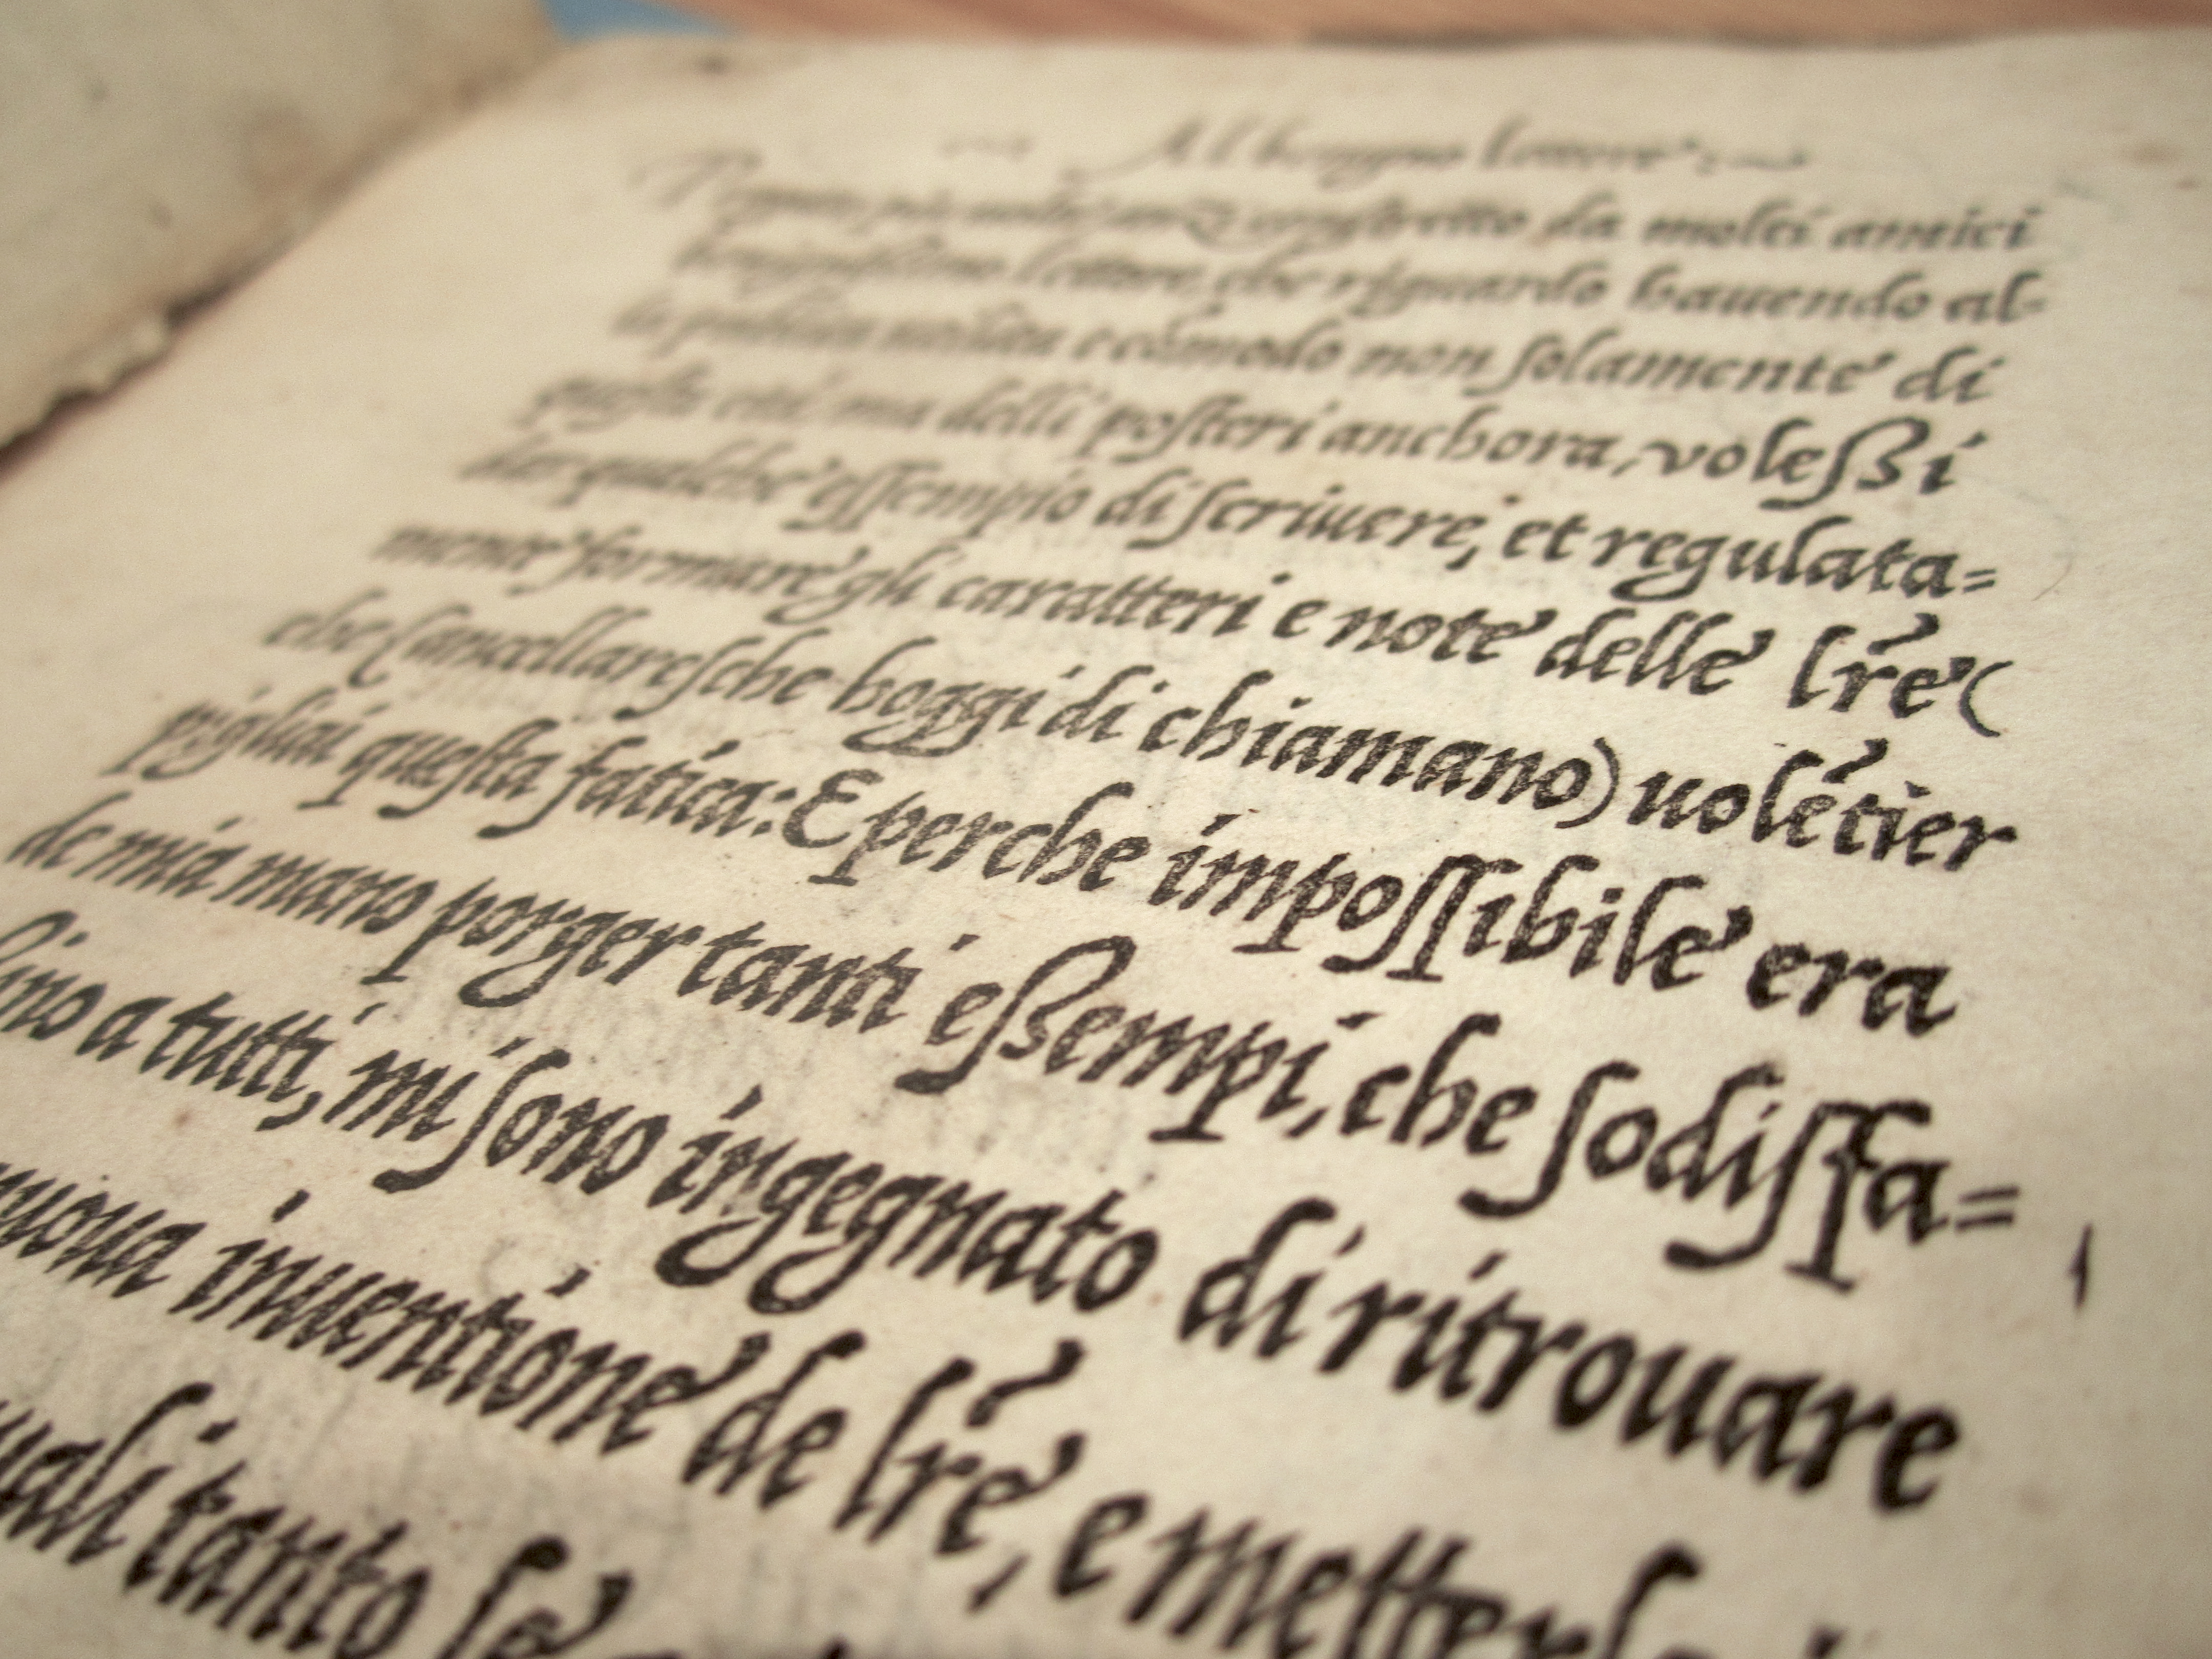 Al benigno lettore:
Pregato piu volte, anzi constretto da molti amici
benignissimo lettore, che riguardo hauendo al-
la publica utilita e cómodo non solamente di
questa eta, ma delli posteri anchora, voleſsi
dar qualche eſſempio di ſcriuere, et regulata=
mente formare gli caratteri e note delle lr̃e (
che Cancellareſche hoggi di chiamano) uolẽtier
pigliai queſta fatica: E perche impoſſibile era
de mia mano porger tanti eſsempi, che ſodiſfa=
ſino a tutti, mi ſono ingegnato di ritrouare
nuoua inuentione de lr̃e, e metterle in
quali tanto ſe